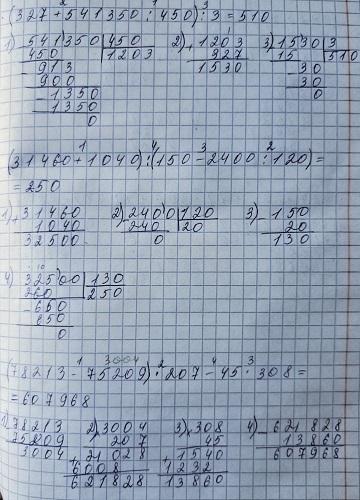 (327 + 541350 : 450) : 3 = 510
1) 541350 | 450
450 | 1203
913
900
1350
1350
0
2) 1203
327
1530
3) 1530 | 3
15 | 510
30
30
0
(31460 + 1040) : (150 - 2400 : 120) =
= 250
1) 31460
1040
32500
2) 2400 | 120
240 | 20
0
3) 150
20
130
4) 32500 | 130
260 | 250
650
650
0
3004
(78213 - 75209) · 207 - 45 · 308 =
= 607968
1) 78213
75209
3004
2) 3004
207
+ 21028
6008
621828
3) 308
45
+ 1540
1232
13860
4) 621828
13860
607968